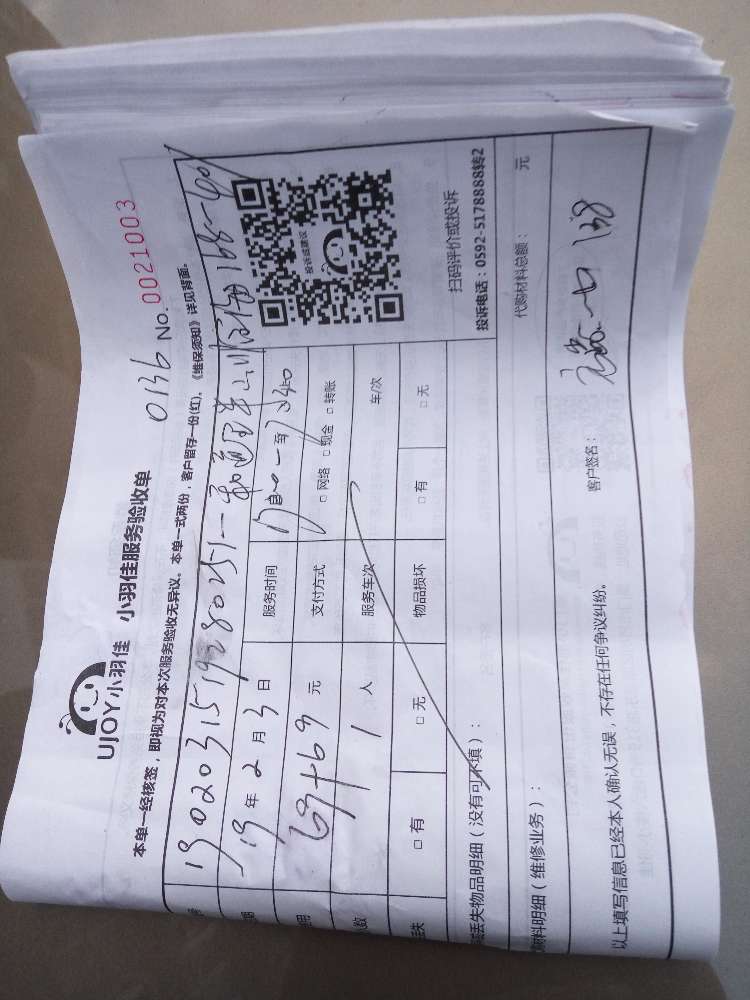 UJOY小羽佳 小羽佳服务验收单
0136 No. 0021003
本单一经核签，即视为对本次服务验收无异议。本单一式两份，客户留存一份(红)，《维保须知》详见背面。
190203151928025
19年2月3日 服务时间
69+69 元 支付方式 □网络 □现金 □转账
1 人 服务车次 车/次
□有 □无 物品损坏 □有 □无
投诉或建议
扫码评价或投诉
投诉电话：0592-5178888转2
丢失物品明细（没有可不填）：
材料明细（维修业务）： 代购材料总额： 元
客户签名：
以上填写信息已经本人确认无误，不存在任何争议纠纷。